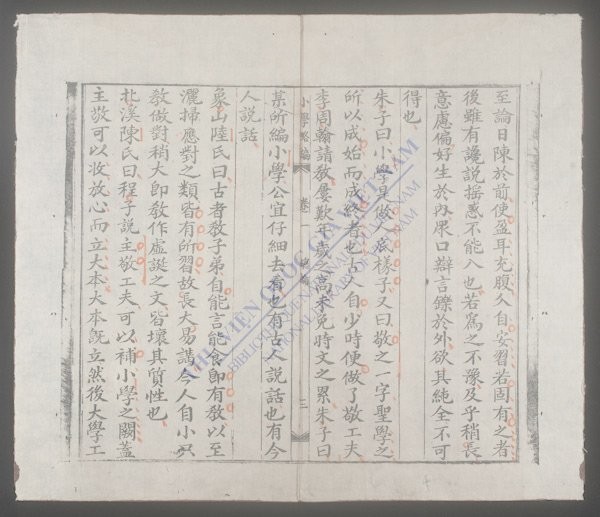 至論日陳於前使盈耳充腹久自安習若固有之者
後雖有讒說搖惑不能入也若爲之不豫及乎稍長
意慮偏好生於內眾口辯言鑠於外欲其純全不可
得也
朱子曰小學是做人底樣子又曰敬之一字聖學之
所以成始而成終者也古人自少時便做了敬工夫
李周翰請教屢歎年歲之高未免時文之累朱子曰
小學畧編 卷一 三
某所編小學公宜仔細去看也有古人說話也有今
人說話
象山陸氏曰古者教子弟自能言能食即有教以至
灑掃應對之類皆有所習故長大易語今人自小只
教做對稍大即教作虛誕之文皆壞其質性也
北溪陳氏曰程子說主敬工夫可以補小學之闕蓋
主敬可以收放心而立大本大本旣立然後大學工
THƯ VIỆN QUỐC GIA VIỆT NAM